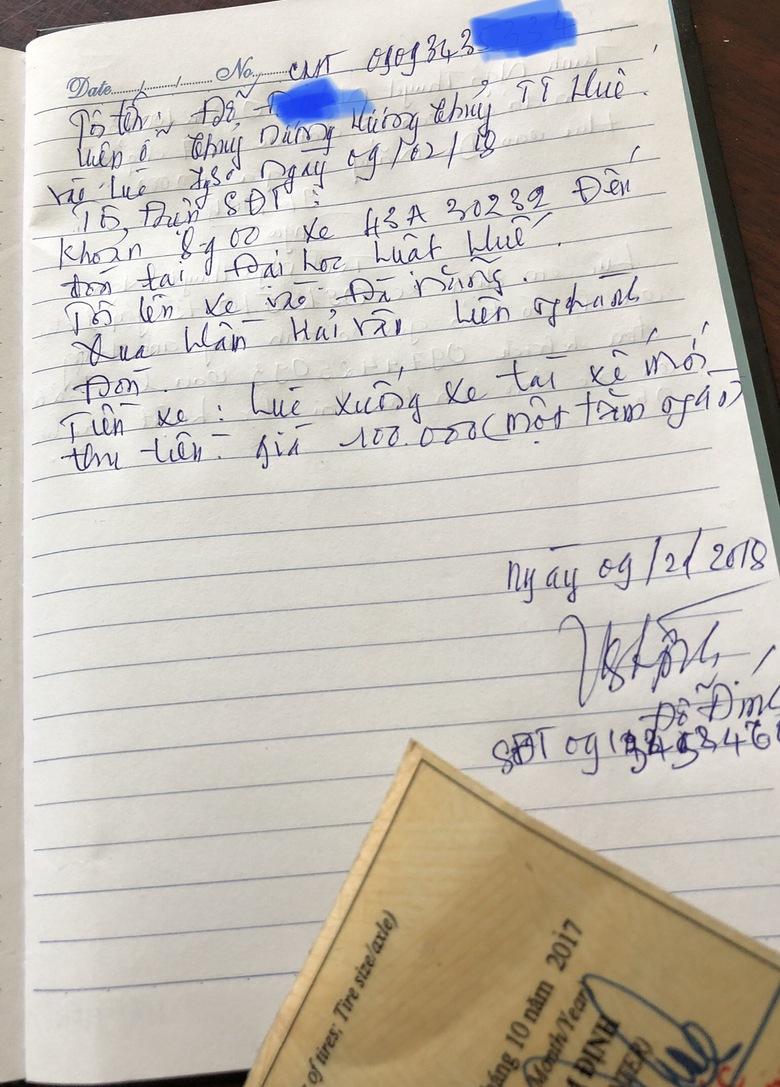 Date......./......./........ No........ CMT 0909343
Tôi tên: Đỗ
hiện ở Thủy Dương Hương Thủy TT Huế.
vào lúc 7g30 ngày 09/02/18
Tôi, Điện SĐT:
khoản 8g00 xe 43A 30239 Đến
đón tại Đại học Luật Huế.
Tôi lên xe vào Đà Nẵng.
Qua Hầm Hải Vân liên nghành
Đón.
Tiền xe: Lúc xuống xe tài xế mới
thu tiền: giá 100.000 (một trăm ngàn)
Ngày 09/2/2018
Đỗ Đình
SĐT
of tires; Tire size/axle)
tháng 10 năm 2017
Month/Year)
ĐỊNH